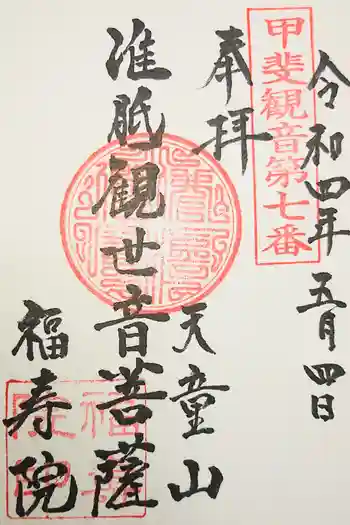 令和四年 五月四日
甲斐観音第七番
奉拝
天童山
准胝観世音菩薩
福寿院